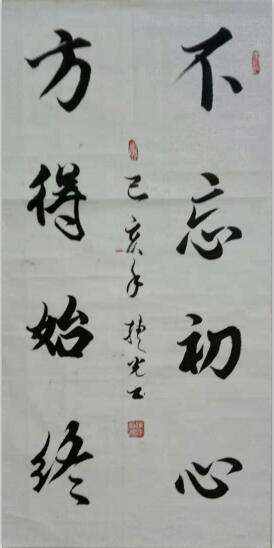 不忘初心
方得始终
己亥年